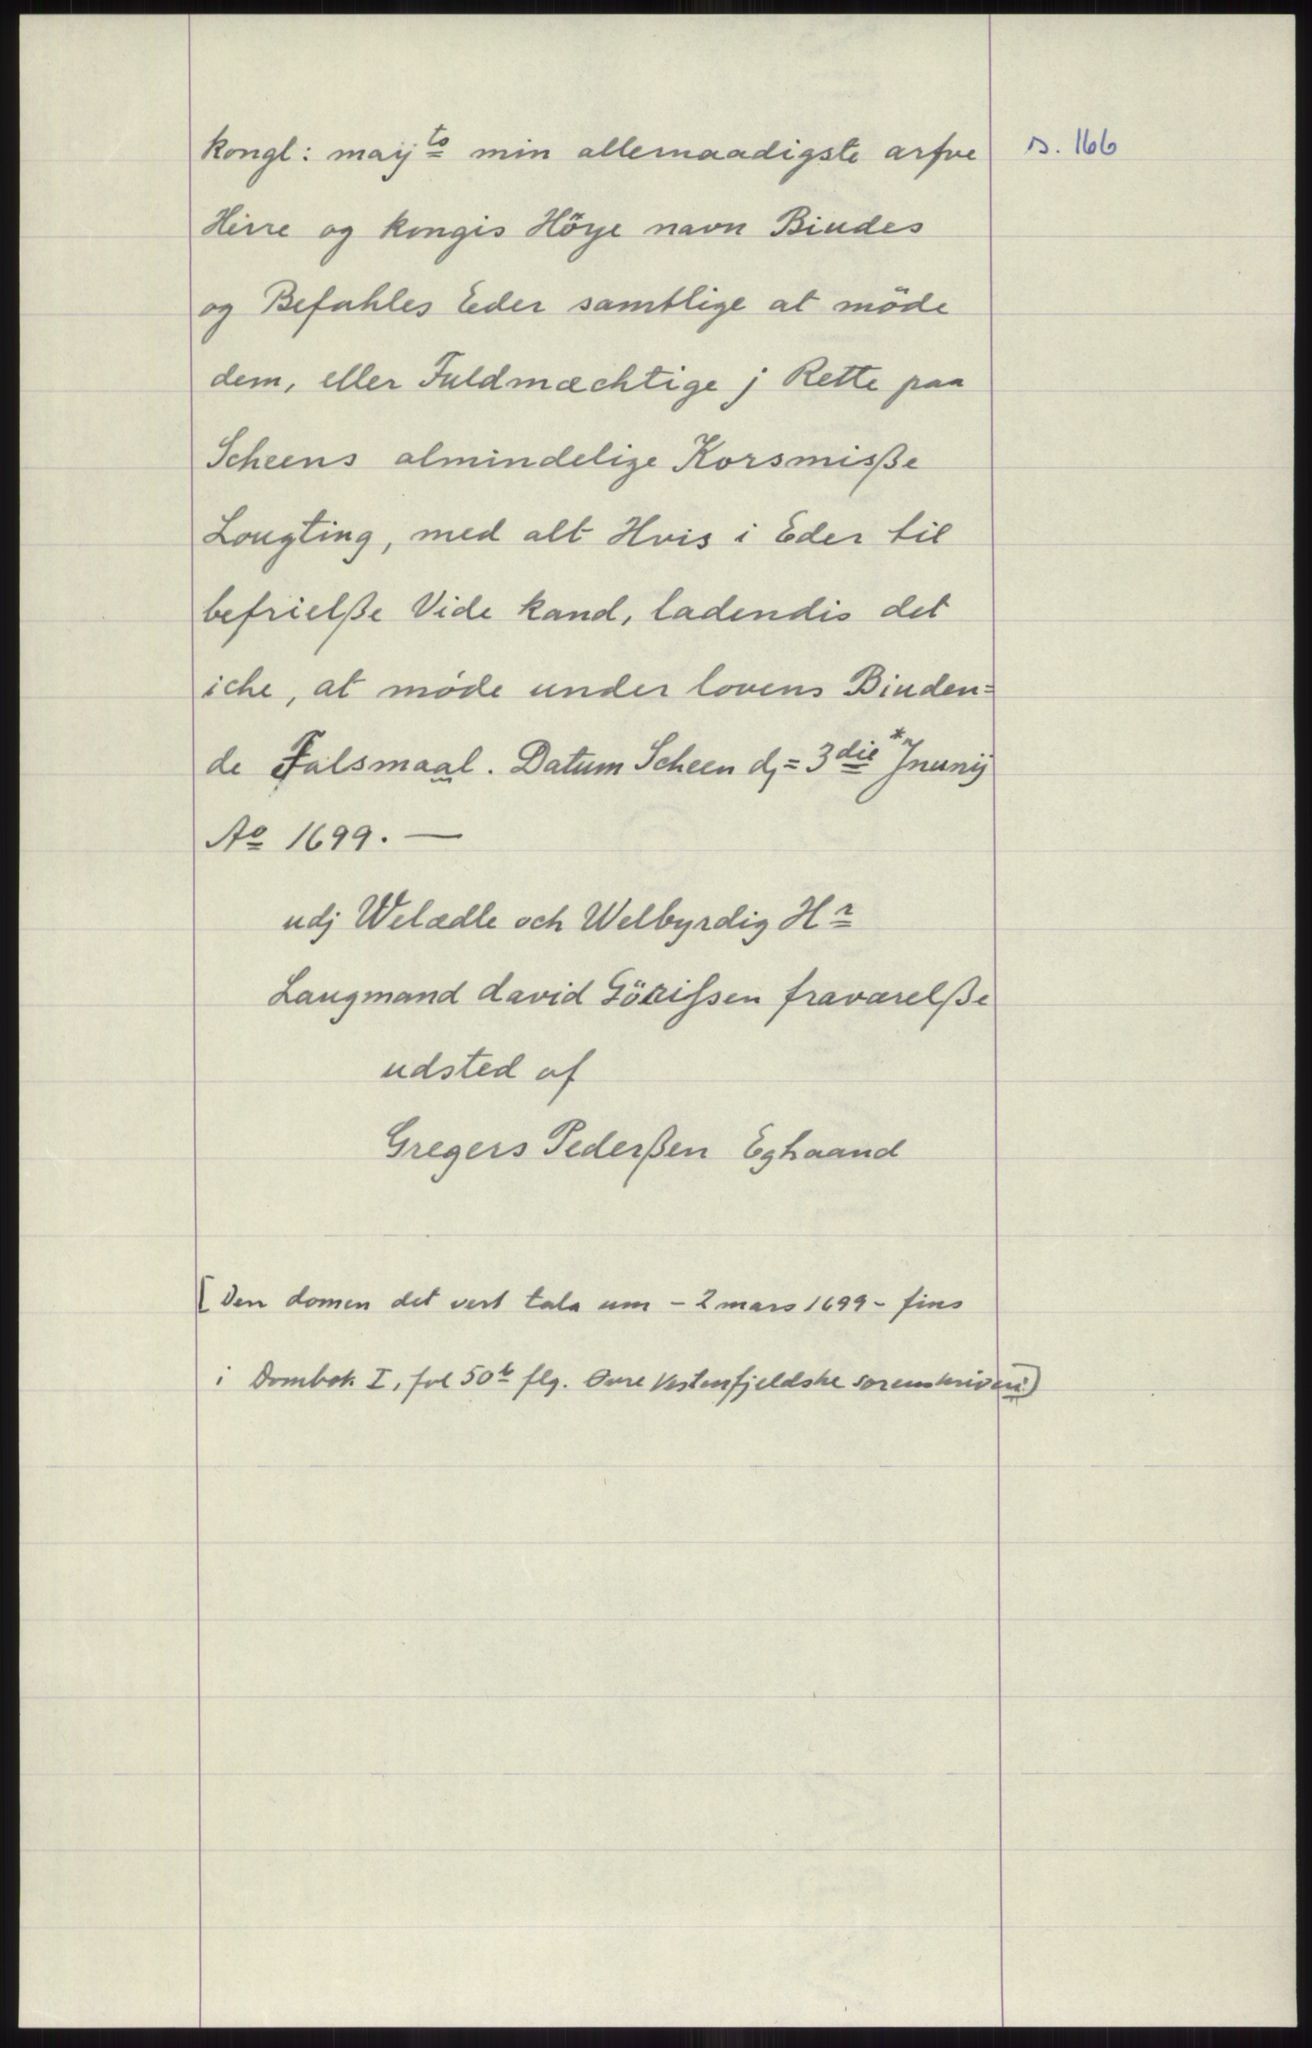 kongl: maij^ts min allernaadigste arfve s. 166
Herre og kongis Höÿe navn Biudes
og Befahles Eder samtlige at möde
dem, eller Fuldmæchtige j Rette paa
Scheens almindelige Korsmisße
Lougting, med alt Hvis i Eder til
befrielße Vide kand, ladendis det
iche, at möde under lovens Biuden=
de Falsmaal. Datum Scheen d= 3die *Jnunij
Ao 1699. —
udj Welædle och Welbyrdig Hr
Laugmand david Görissen fraværelße
udsted af
Gregers Pederßen Eghaand
[Den domen det vert tala um - 2 mars 1699 - fins
i Dombok I, fol 50b flg. Øvre Vestenfjeldske sorenskriveri]